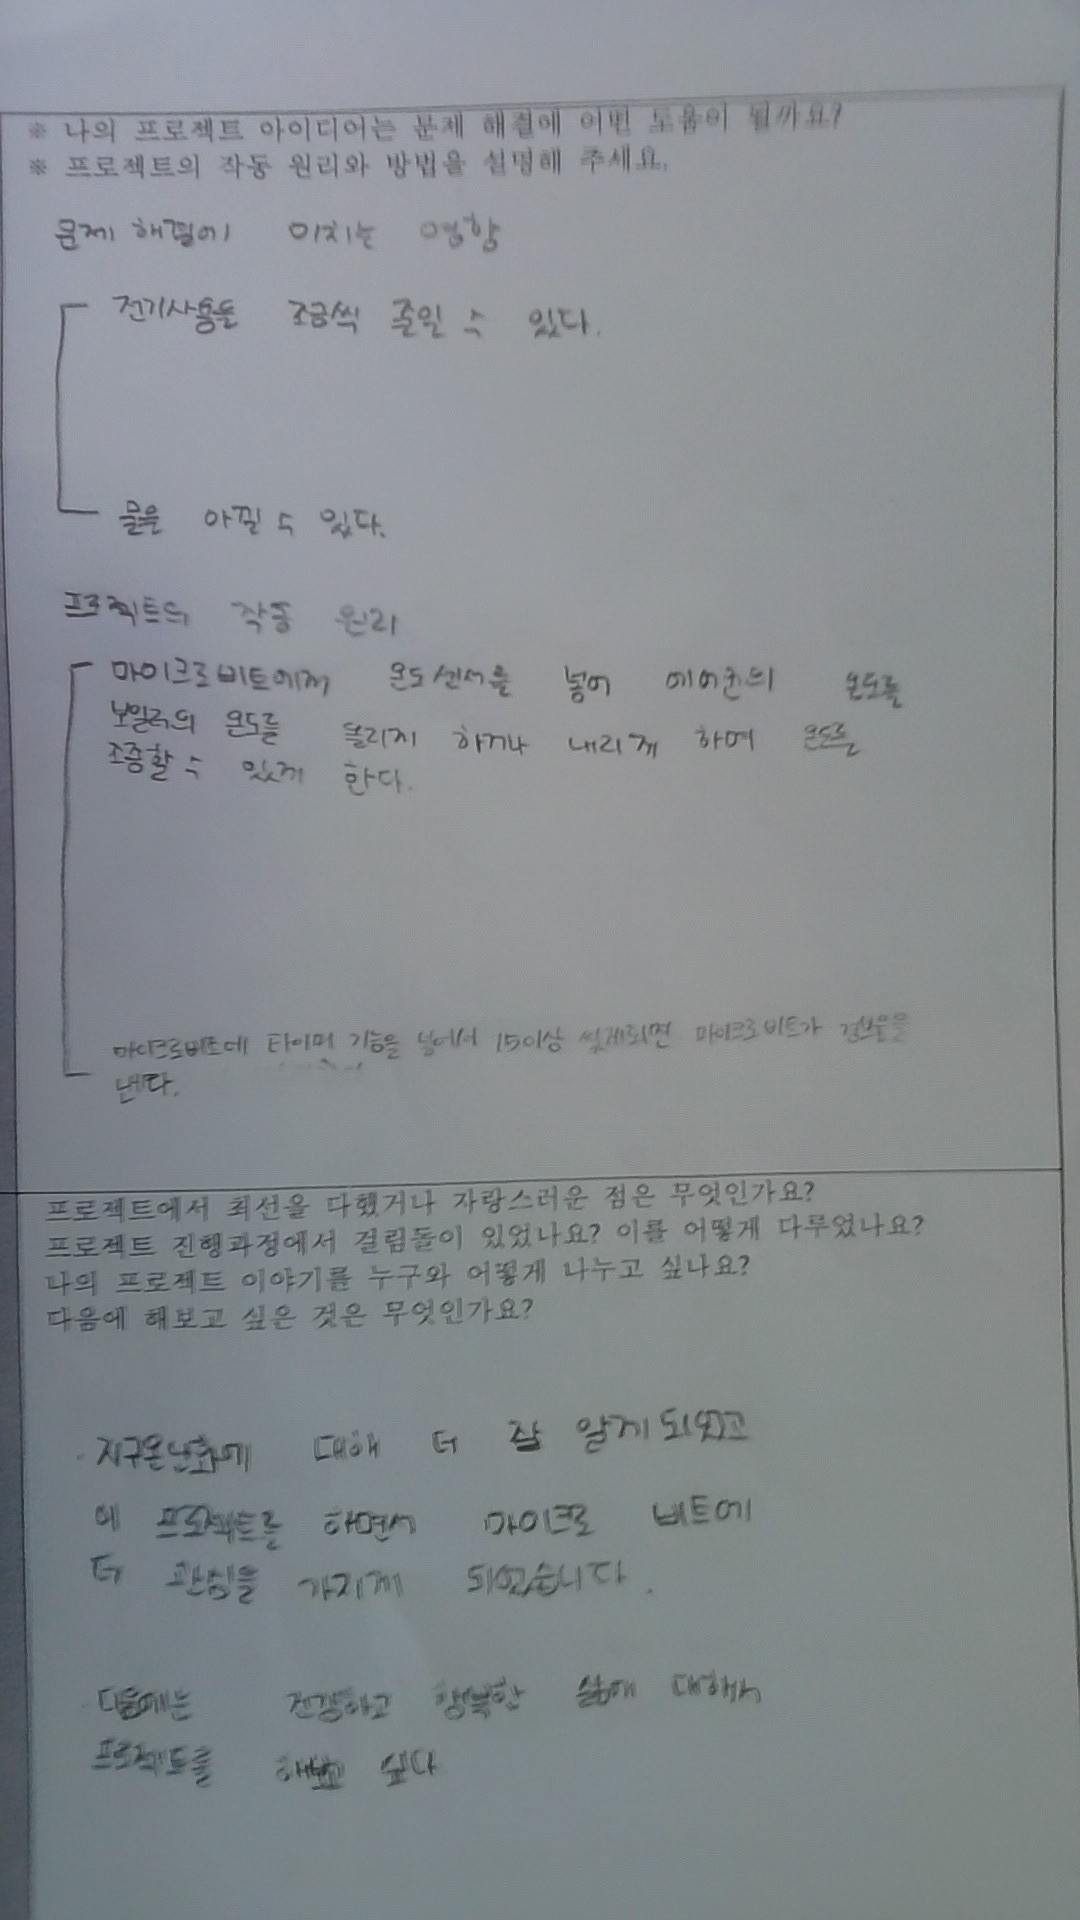 ※ 나의 프로젝트 아이디어는 문제 해결에 어떤 도움이 될까요?
※ 프로젝트의 작동 원리와 방법을 설명해 주세요.
문제 해결에 미치는 영향
전기사용을 조금씩 줄일 수 있다.
물을 아낄 수 있다.
작동 원리
마이크로비트에게 온도센서를 넣어 에어컨의 온도를
보일러의 온도를 올리게 하거나 내리게 하여 온도를
조종할 수 있게 한다.
마이크로비트에 타이머 기능을 넣어서 15이상 씻게되면 마이크로비트가 경보음을
낸다.
프로젝트에서 최선을 다했거나 자랑스러운 점은 무엇인가요?
프로젝트 진행과정에서 걸림돌이 있었나요? 이를 어떻게 다루었나요?
나의 프로젝트 이야기를 누구와 어떻게 나누고 싶나요?
다음에 해보고 싶은 것은 무엇인가요?
지구온난화에 대해 더 잘 알게 되었고
프로젝트를 하면서 마이크로 비트에
더 관심을 가지게 되었습니다.
다음에는 건강하고 행복한 삶에 대해서
프로젝트를 해보고 싶다